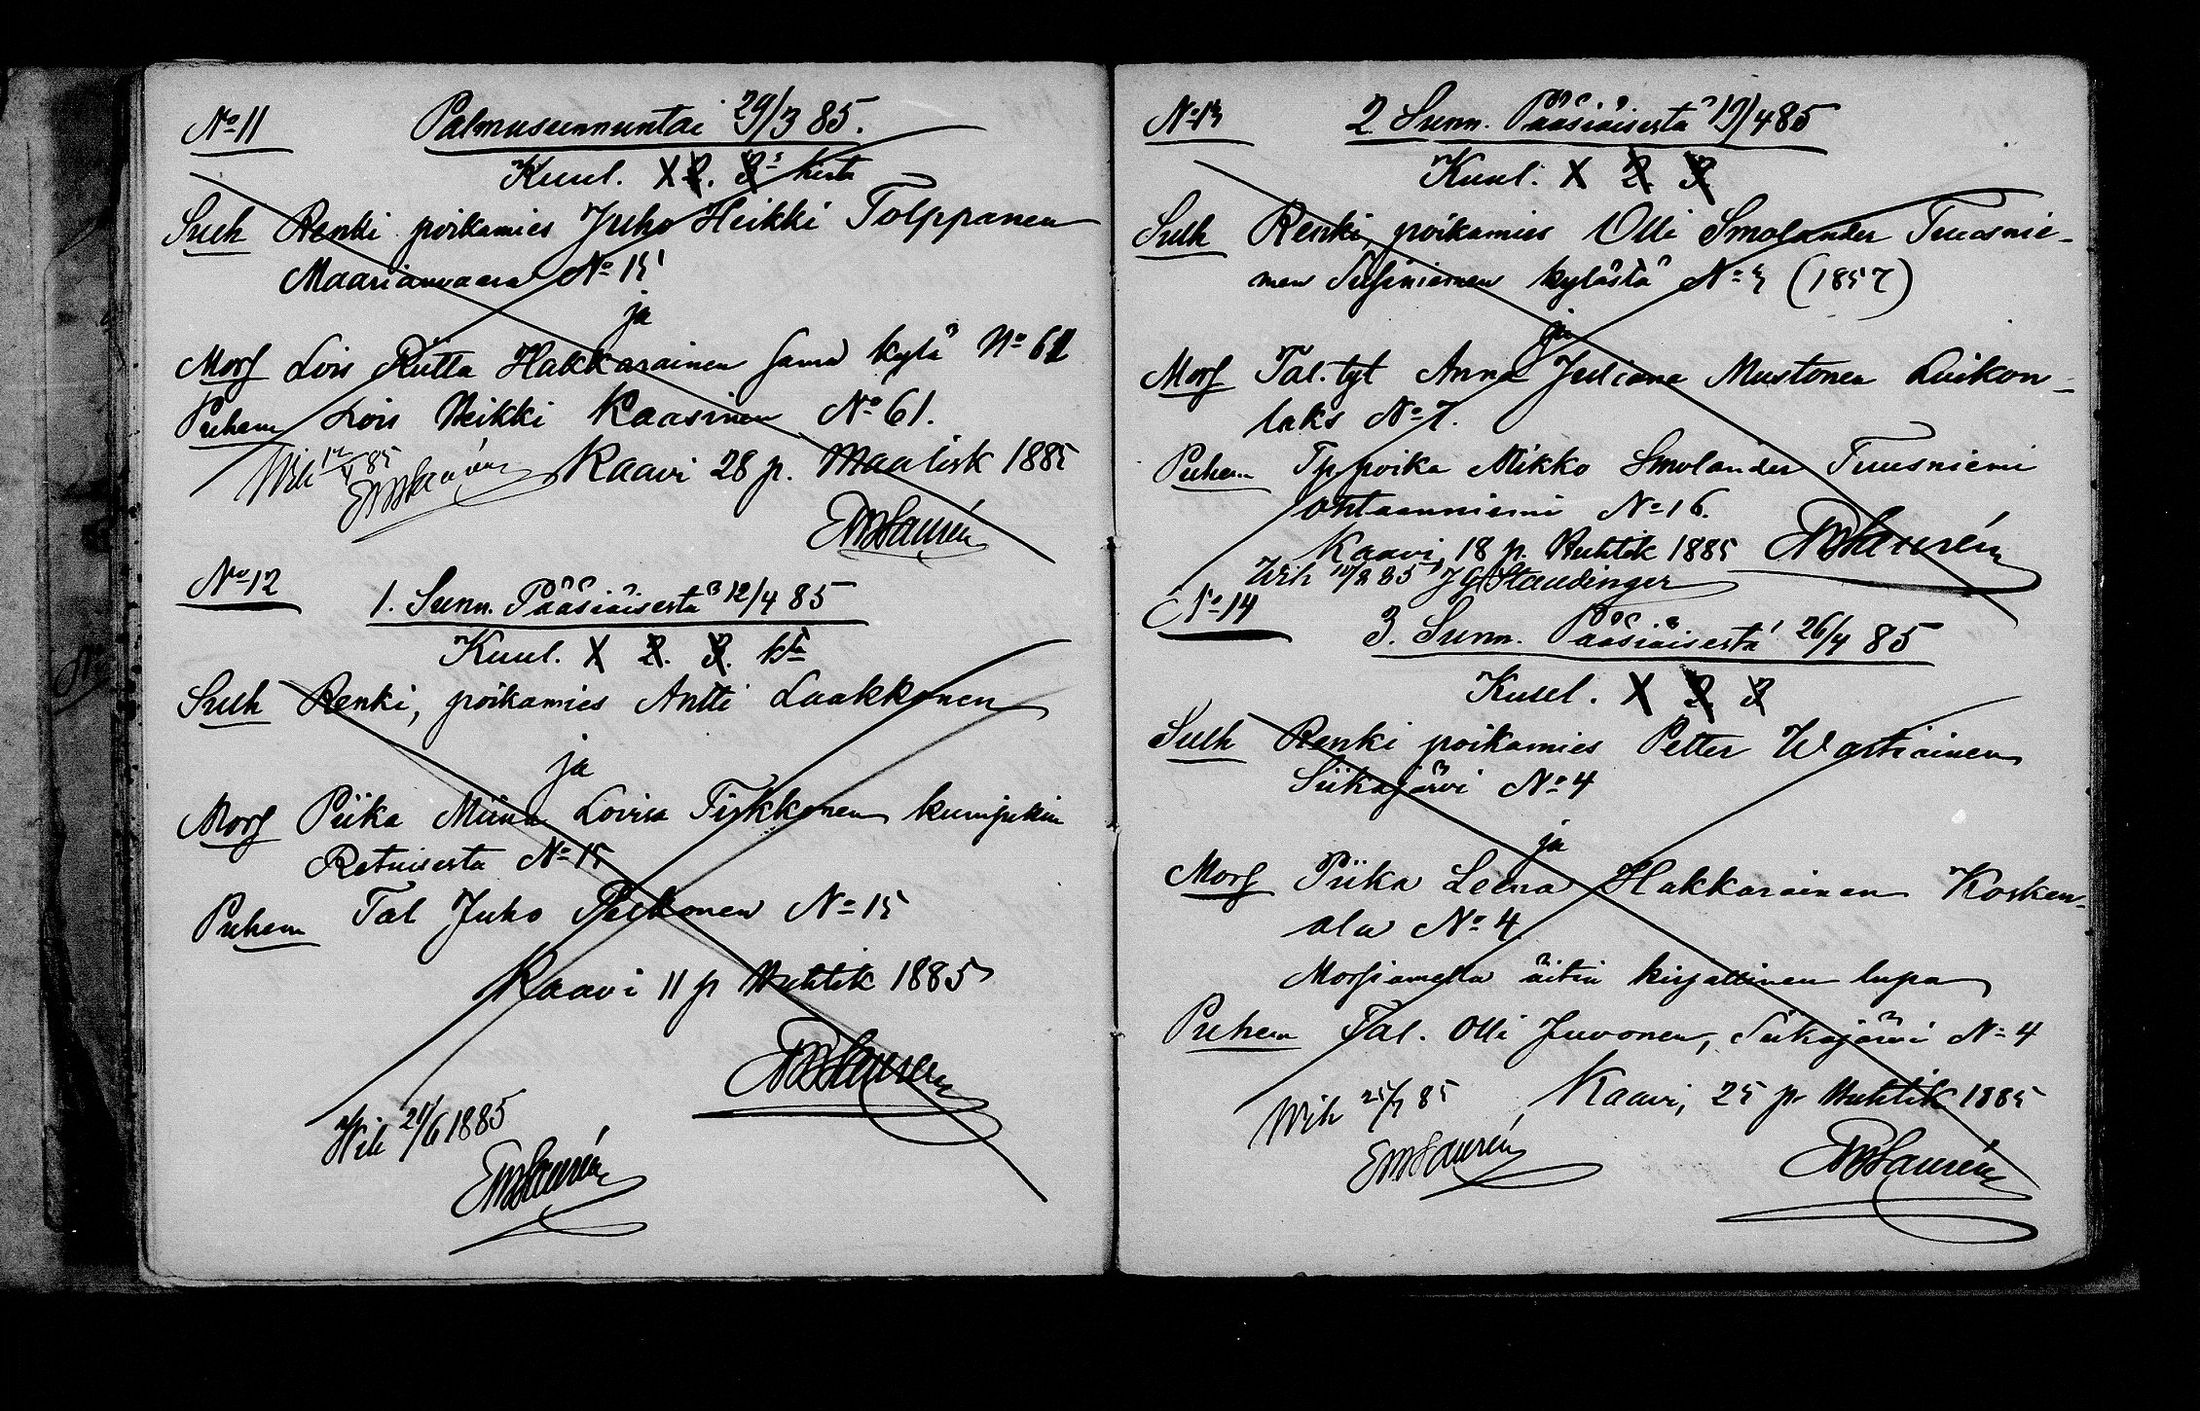 No 11
Palmusunnuntai 29/3 85.
Kuul. 1. 2. 3s kerta
Sulh Renki poikamies Juho Heikki Tolppanen
Maarianvaara No 15
ja
Mors Lois Riitta Hakkarainen sama kylä No 61
Puhem Lois Heikki Kaasinen No 61.
Kaavi 28 p. Maalisk 1885
Wih 12/4 85
EWLaurén
EWLaurén
No 12
1. Sunn. Pääsiäisestä 12/4 85
Kuul. 1 2. 3. kta
Sulh Renki, poikamies Antti Laakkonen
ja
Mors Piika Miina Lovisa Tirkkonen kumpikin
Retuisesta No 15
Puhem Tal Juho No 15
Kaavi 11 p Huhtik 1885
EWLaurén
Wih 21/6 1885
EWLaurén
No 13
2. Sunn. Pääsiäisestä 19/4 85
Kuul. 1 2. 3.
Sulh Renki, poikamies Olli Smolander Tuusnie-
men kylästä No 3 (1857)
ja
Mors Tal. tyt Anna Juliana Mustonen Luikon-
laks No 7.
Puhem Tp poika Mikko Smolander Tuusniemi
Ohtaanniemi No 16.
Kaavi, 18 p. Huhtik 1885 EWLaurén
Wih 85 JGStaudinger
No 14
3. Sunn. Pääsiäisestä 26/4 85
Kuul. 1 2 3
Sulh Renki poikamies Petter Wartiainen
Siikajärvi No 4
ja
Mors Piika Leena Hakkarainen Kosken-
alu No 4
Morsiamella äitin kirjallinen lupa
Puhem Tal. Olli Juvonen, Siikajärvi No 4
Kaavi, 25 p Huhtik 1885
Wih 85
EWLaurén
EWLaurén